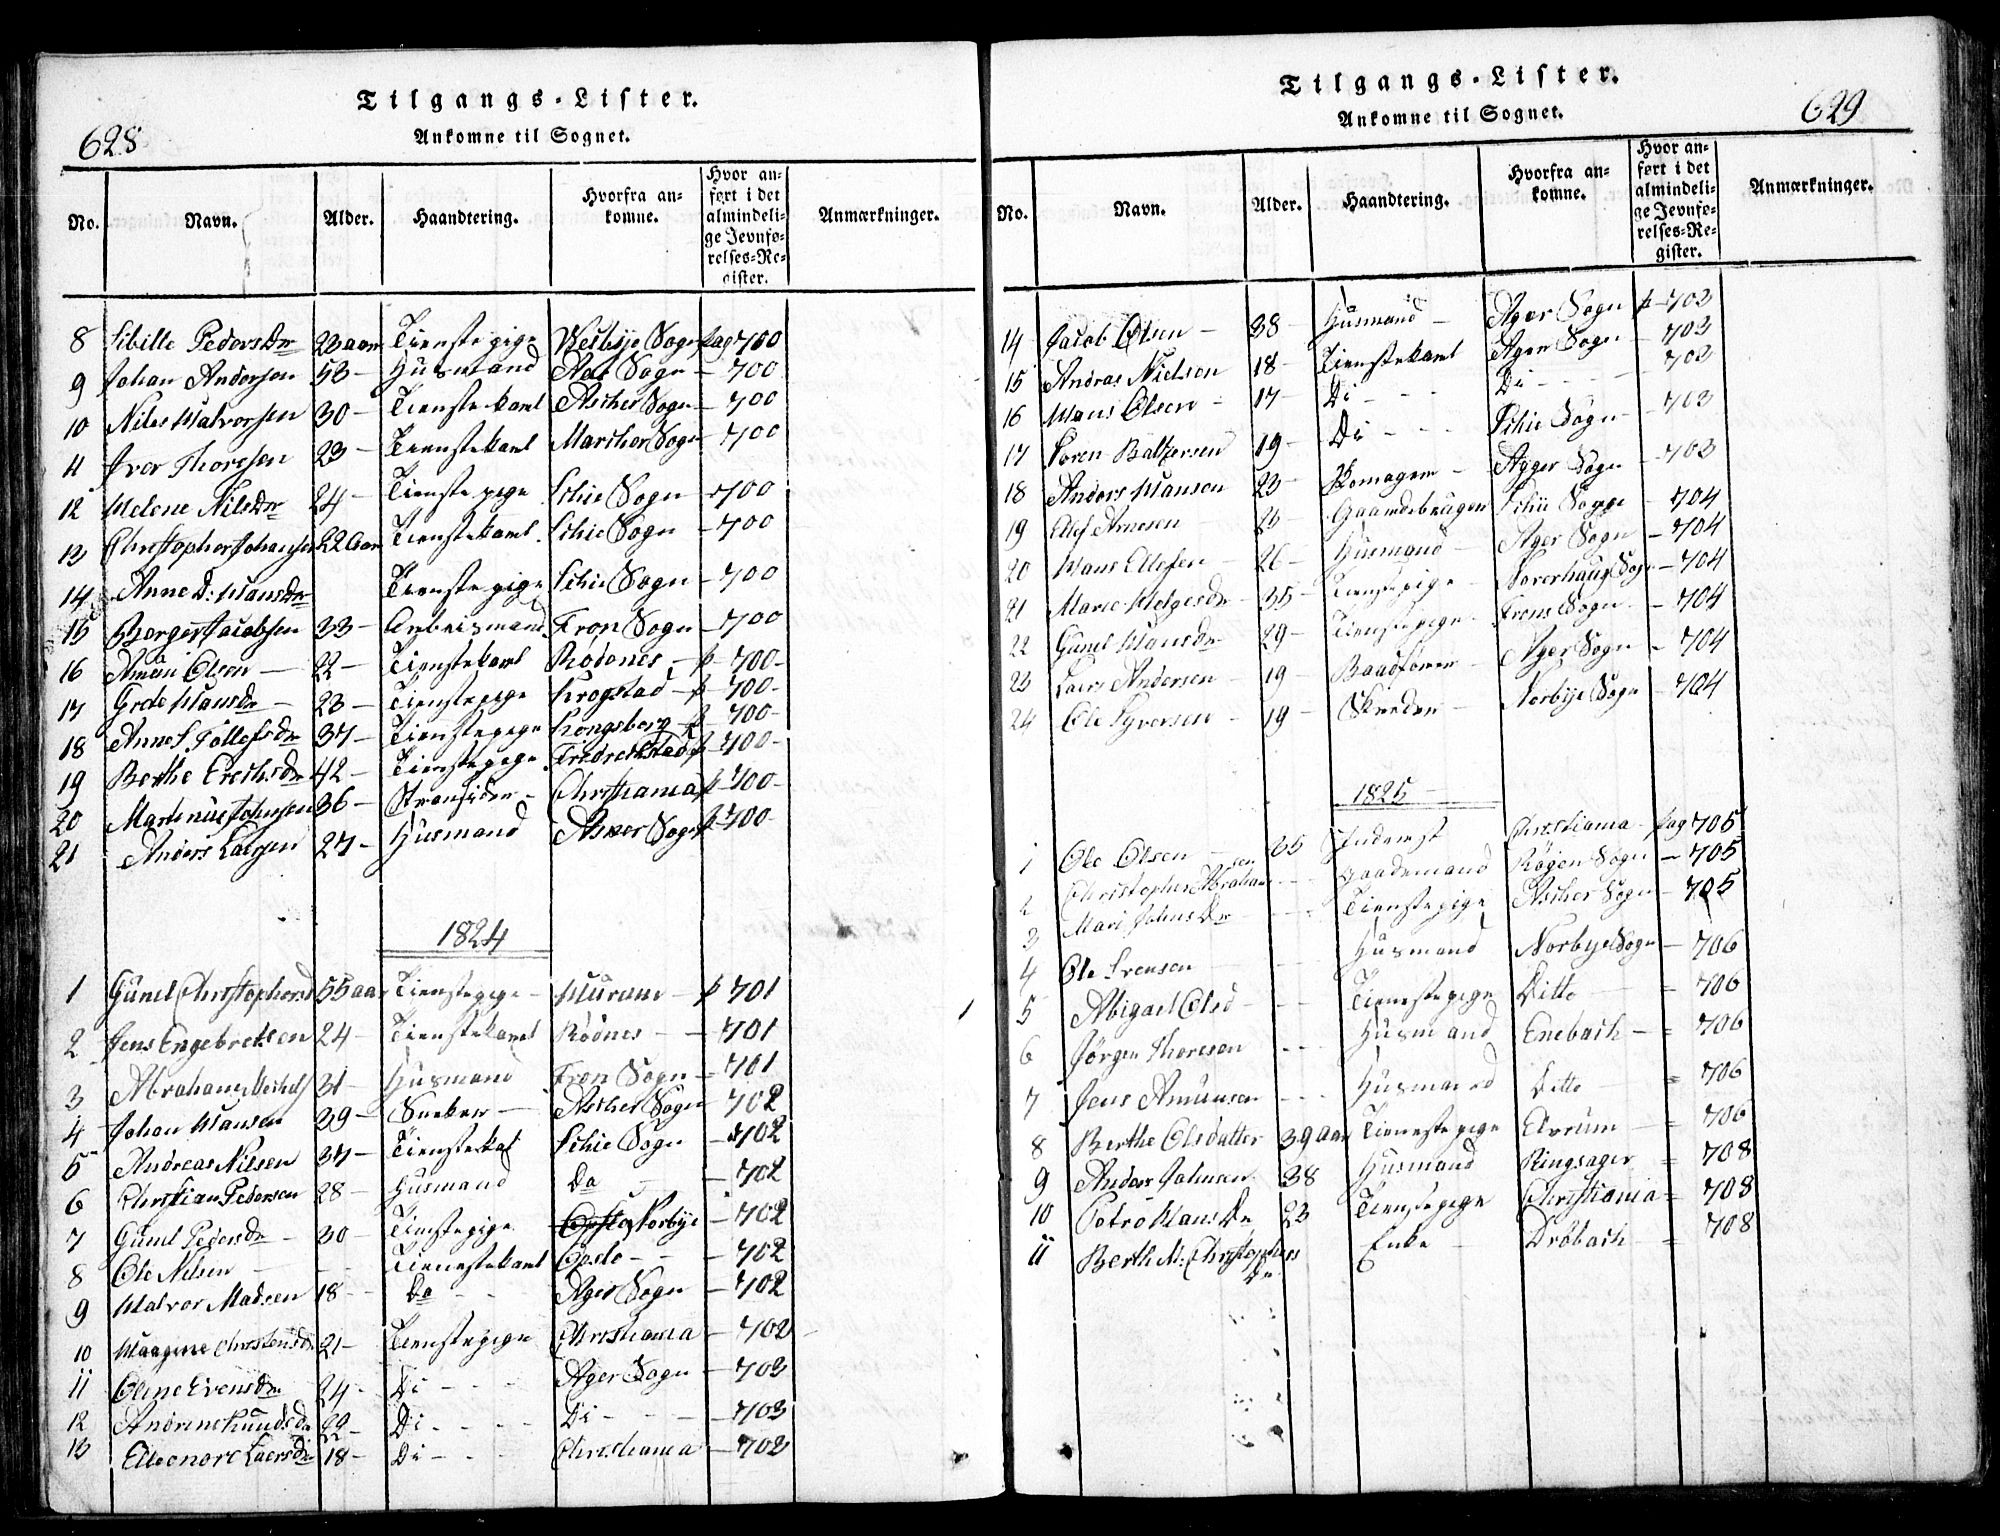 628
Tilgangs-Lister.
Ankomne til Sognet.
No. Navn. Alder. Haandtering. Hvorfra ankomne. Hvor anført i det almindelige Jevnførelses-Register. Anmærkninger.
8 Sibille PedersDr 23 aar Tienstepige Westbye Sogn pag 700
9 Johan Andersen 53 – Husmand Aas Sogn – 700
10 Niles Halvorsen 30 – Tienstekarl Ascher Sogn – 700
11 Iver Thoresen 23 – Tienstekarl Sogn – 700
12 Helene NilsDr 24 – Tienstepige Schie Sogn – 700
13 Christopher Johansen 22 Aar Tienstekarl Schie Sogn – 700
14 Anne D: HansDr Tienstepige Schie Sogn – 700
15 Borger Jacobsen 33 – Arbeismand Fron Sogn – 700
16 Olsen – 22 – Tienstekarl Rødenes – p – 700 –
17 Grete HansDr – 23 – Tienstepige Krogstad – p – 700 –
18 Anne S. TollefsDr 37 – Tienstepige Kongsberg – p – 700 –
19 Berthe ErichsDr 42 – Tienstepige Fredrechstad p – 700 –
20 Martinus Johnsen 36 – Christiania p – 700 –
21 Anders Larsen 27 – Husmand Asker Sogn p – 700
1824
1 Gunel Christophersd 55 aar Tienstepige – Hurum – p 701
2 Jens Engebretsen 24 – Tienstekarl Rødnes – – 701
3 Abraham 31 – Husmand Fron Sogn – 701
4 Johan Hansen 39 – Sneker – Ascher Sogn – 702
5 Andreas Nilsen 34 – Tienstekal Schie Sogn – 702
6 Christian Pedersen 28 – Husmand Do – 702
7 Gunel PedersDr – 30 – Tienstepige Norbye – 702
8 Ole Nilsen – Tienestekarl Opslo – – 702
9 Halvor Madsen 18 – Do – – Ager Sogn – 702
10 Maagine ChristensDr 21 – Tienstepige Christiania – 702
11 Oline EvensDr 24 – Di – – – Ager Sogn – 703
12 Andrine KnudsDr 22 – Di – – – Di – – – 703
13 Elleonore LaersDr 18 – Di – – – Christiania – 703
629
Tilgangs-Lister.
Ankomne til Sognet.
No. Navn. Alder. Haandtering. Hvorfra ankomne. Hvor anført i det almindelige Jevnførelses-Register. Anmærkninger.
14 Jacob Olsen – 38 – Husmand – Ager Sogn p – 703
15 Andras Nielsen 18 – Tienstekarl Ager Sogn – 703
16 Hans Olsen – 17 – Di – – – Di – – – 703
17 Søren Baltzersen 19 – Di – – – Schie Sogn – 703
18 Anders Hansen 23 – – Agger Sogn – 703
19 Olef Arnesen Gaardebrugen Schie Sogn – 704
20 Hans Ellefsen – 26 – Husmand – Ager Sogn – 704
21 Marie HelgesDr – 35 – Tienstepige – Sogn – 704
22 Gunel HansDr – 29 – Tienstepige – Frons Sogn – – 704
23 Laers Andersen – 19 – Baadfører – Ager Sogn – 704
24 Ole Syversen – 19 – Skreder – Norbye Sogn – 704
1825
1 Ole Olsen – 35 Inderst Christiania – pag 705
2 Christopher Abrahamsen – – – Gaardemand Røgen Sogn – 705
3 Mari JohnsDr – – – Tienstepige Ascher Sogn – 705
4 Ole Svensen – Husmand Norbye Sogn – 706
5 Abigael Olsd – – – Tienestepige Ditto – = 706
6 Jørgen Thoresen – – – Husmand Enebach – = 706
7 Jens Amunsen – – – Husmand Ditto – = 706
8 Berthe Olsdatter 39 Aar Tienestepige Elvrum – = 706
9 Anders Johnsen 38 Husmand Ringsager – = 708
10 Petro HansDr 23 Tienstepige Christiania = 708
11 Berth M: ChristophersDr Enke – Drøbach – = 708